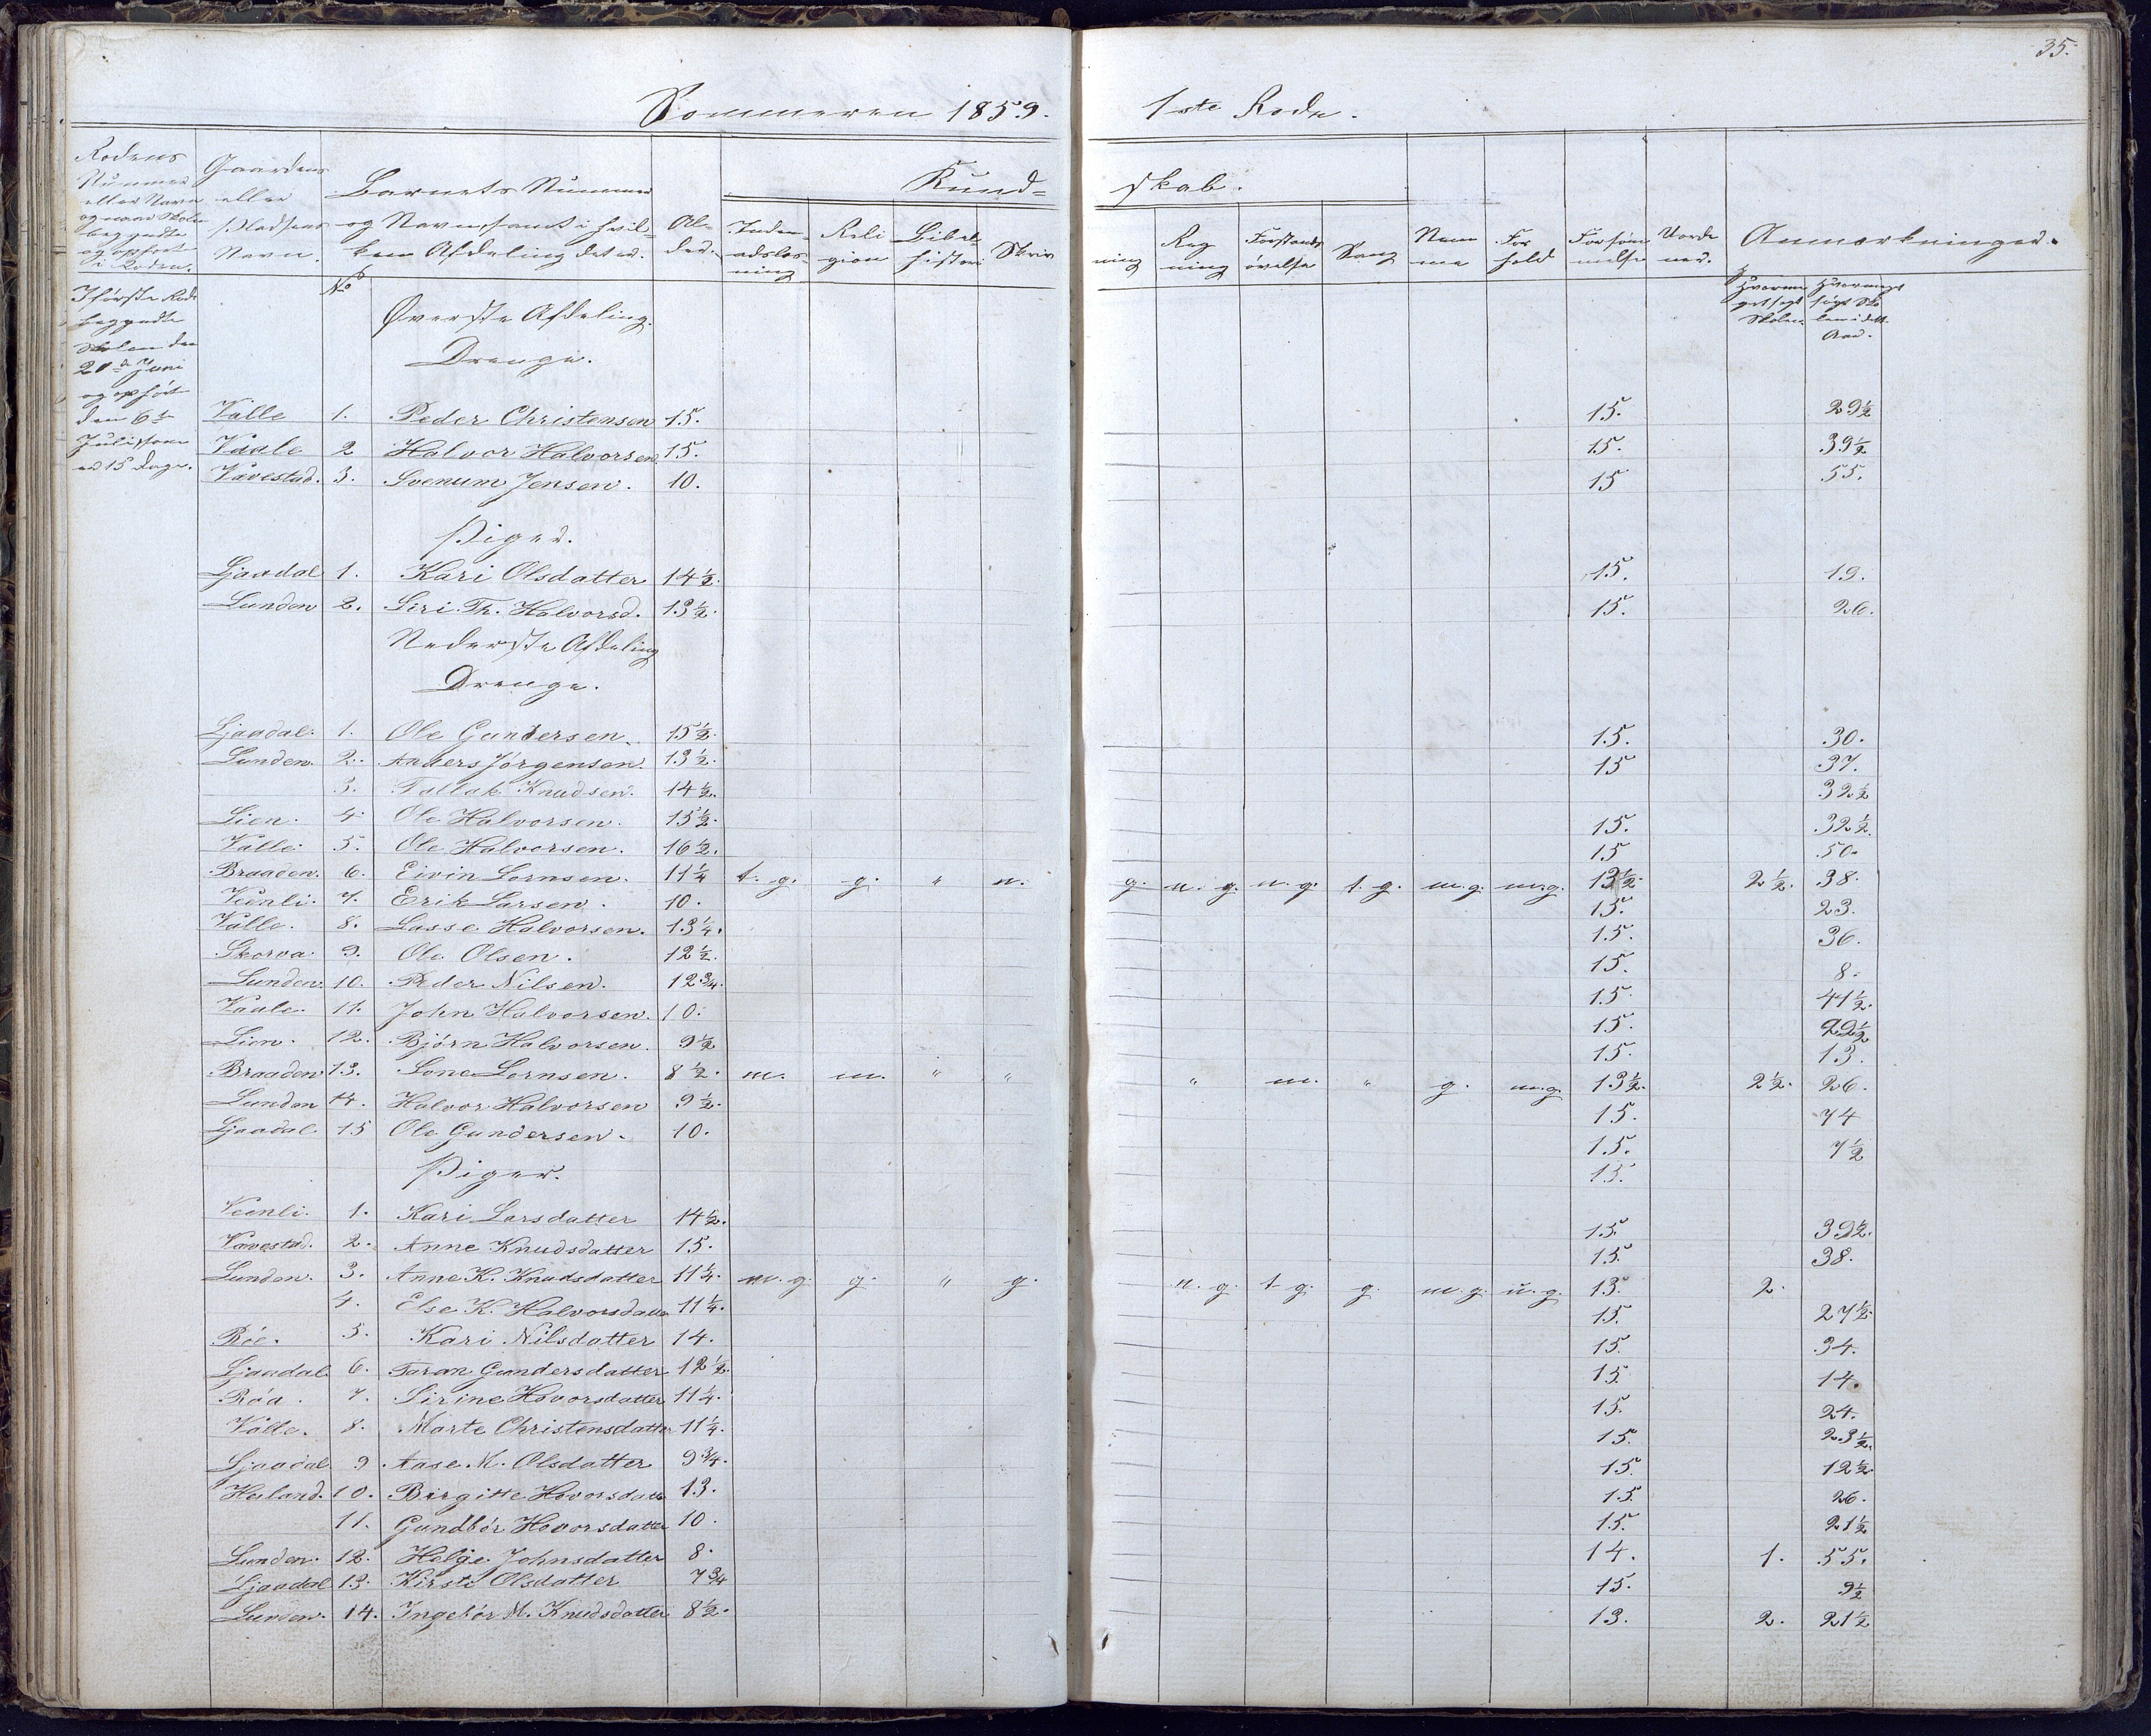 35.
Sommeren 1859. 1ste Rode.
Rodens Nummer eller Navn og naar Skolen begyndte og ophørt i Roden.
Gaardens eller Pladsens Navn.
Barnets Nummer og Navn, samt i hvilken Afdeling det er.
Alder.
Kundskab.
Inden-adslæsning
Religion
Bibelhistorie
Skrivning
Regning
Forstandsøvelse
Sang
Nemme
Forhold
Forsømmelse
Anmærkninger.
No
Hvormeget søgt Skolen
Hvormeget søgt Skolen i dette Aar.
I første Rode
begyndte
Skolen den
20de Juni
og ophørt
den 6te
Juli, som
er 15 Dage.
Øverste Afdeling.
Drenge.
Valle 1. Peder Christensen 15. 15. 29½
Vaale 2 Halvor Halvorsen 15. 15. 39½
Vavestad. 3. Svenum Jensen. 10. 15 55.
Piger.
Ljaadal 1. Kari Olsdatter 14½. 15. 19.
Lunden 2. Siri Th. Halvorsd. 13½. 15. 26.
Nederste Afdeling
Drenge.
Ljaadal. 1. Ole Gundersen. 15½. 15. 30.
Lunden. 2. Anders Jørgensen. 13½. 15 37.
3. Tallak Knudsen. 14½. 32½
Lien. 4. Ole Halvorsen. 15½. 15. 32½.
Valle. 5. Ole Halvorsen. 16½. 15 50.
Braaden. 6. Eivin Lornsen. 11¼ t. g. g. " n. g. n. g. n. g. t. g. m. g. m. g. 13½. 2½. 38.
Veenli. 7. Erik Larsen. 10. 15. 23.
Valle. 8. Lasse Halvorsen. 13¼. 15. 36.
Skorva. 9. Ole Olsen. 12½. 15. 8.
Lunden. 10. Peder Nilsen. 12¾. 15. 41½.
Vaale. 11. John Halvorsen. 10. 15. 22½
Lien. 12. Bjørn Halvorsen. 9½ 15. 13.
Braaden 13. Lone Lornsen. 8½. m. m. " " " m. " g. m. g. 13½. 2½. 26.
Lunden 14. Halvor Halvorsen 9½. 15. 74
Ljaadal 15 Ole Gundersen. 10. 15. 7½
15.
Piger.
Veenli. 1. Kari Larsdatter 14½. 15. 39½.
Vavestad. 2. Anne Knudsdatter 15. 15. 38.
Lunden. 3. Anne K. Knudsdatter 11¼. m. g. g. " g. n. g. t. g. g. m. g. u. g. 13. 2.
4. Else K. Halvorsdatter 11¼. 15. 27½.
Röe. 5. Kari Nilsdatter 14. 15. 34.
Ljaadal. 6. Taran Gundersdatter 12½. 15. 14.
Röd. 7. Sirine Hovorsdatter 11¼. 15. 24.
Valle. 8. Marte Christensdatter 11¼. 15. 23½.
Ljaadal 9 Aase M. Olsdatter 9¾. 15. 12½.
Heiland. 10. Birgitte Hovorsdatter 13. 15. 26.
11. Gundbór Hovorsdatter 10. 15. 21½
Lunden. 12. Helge Johnsdatter 8. 14. 1. 55.
Ljaadal 13. Kirsti Olsdatter 7¾ 15. 9½
Lunden. 14. Ingebór M. Knudsdatter 8½. 13. 2. 21½